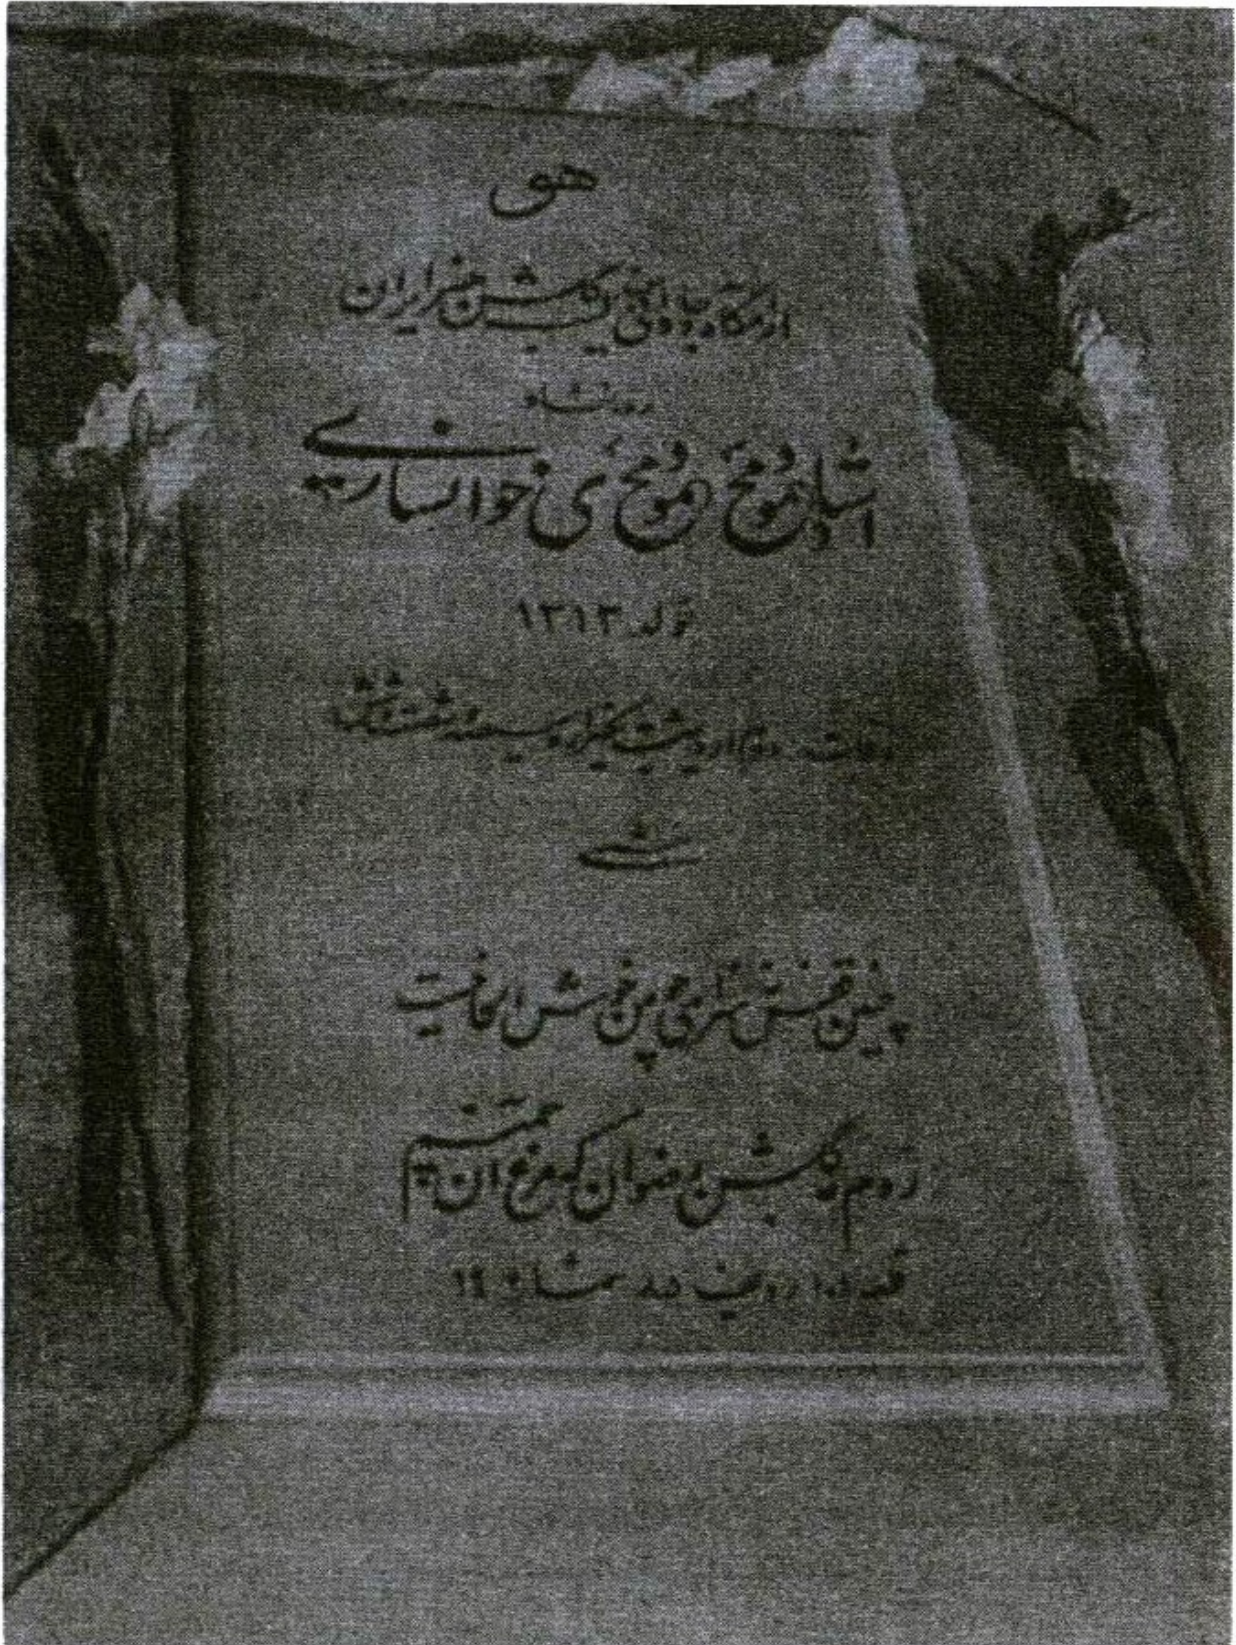 هو
آرامگاه جاودانی گلشن هنر ایران
روانشاد
استاد محمود محمودی خوانساری
تولد ۱۳۱۳
وفات دوم اردیبهشت یکهزار و سیصد و شصت و شش
شمسی
چنین قفس نه سزای چو من خوش الحانیست
روم به گلشن رضوان که مرغ آن چمنم
قطعه ردیف شماره